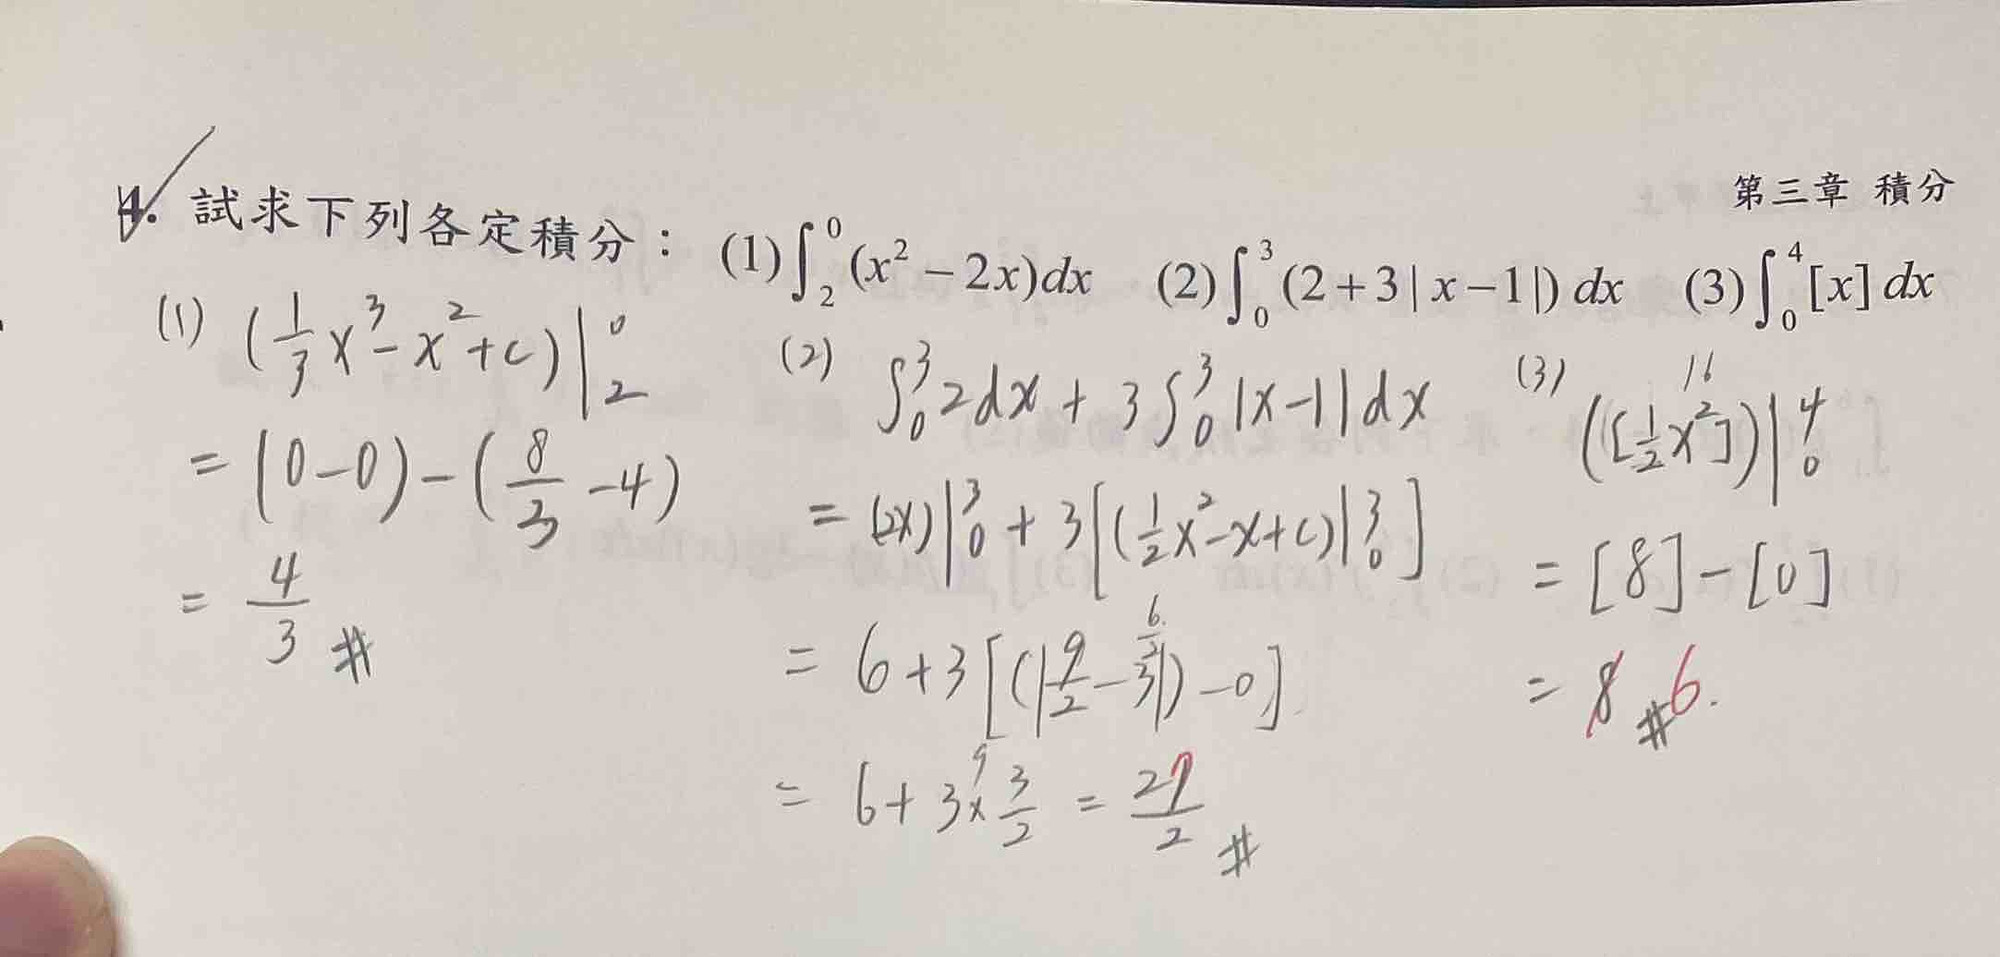 第三章 積分
4. 試求下列各定積分：(1)∫₂⁰(x² − 2x)dx (2)∫₀³(2+3|x−1|) dx (3)∫₀⁴[x] dx
(1) (1/3 x³ − x² + c)|₂⁰
= (0−0) − (8/3 − 4)
= 4/3 #
(2) ∫₀³ 2dx + 3∫₀³ |x−1| dx
= (2x)|₀³ + 3[(1/2 x² − x + c)|₀³]
= 6 + 3[(|9/2 − 3|) − 0]
= 6 + 3 × 3/2 = 29/2 #
(3) ([1/2 x²])|₀⁴
16
= [8] − [0]
= 8 # 6.